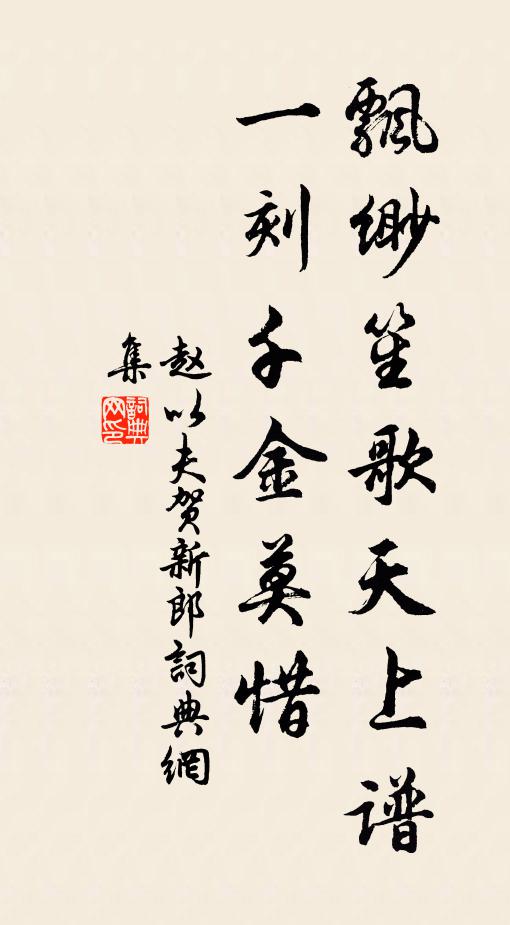 飄缈笙歌天上谱
一刻千金莫惜
赵以夫贺新郎詞典網
集
詞典網印